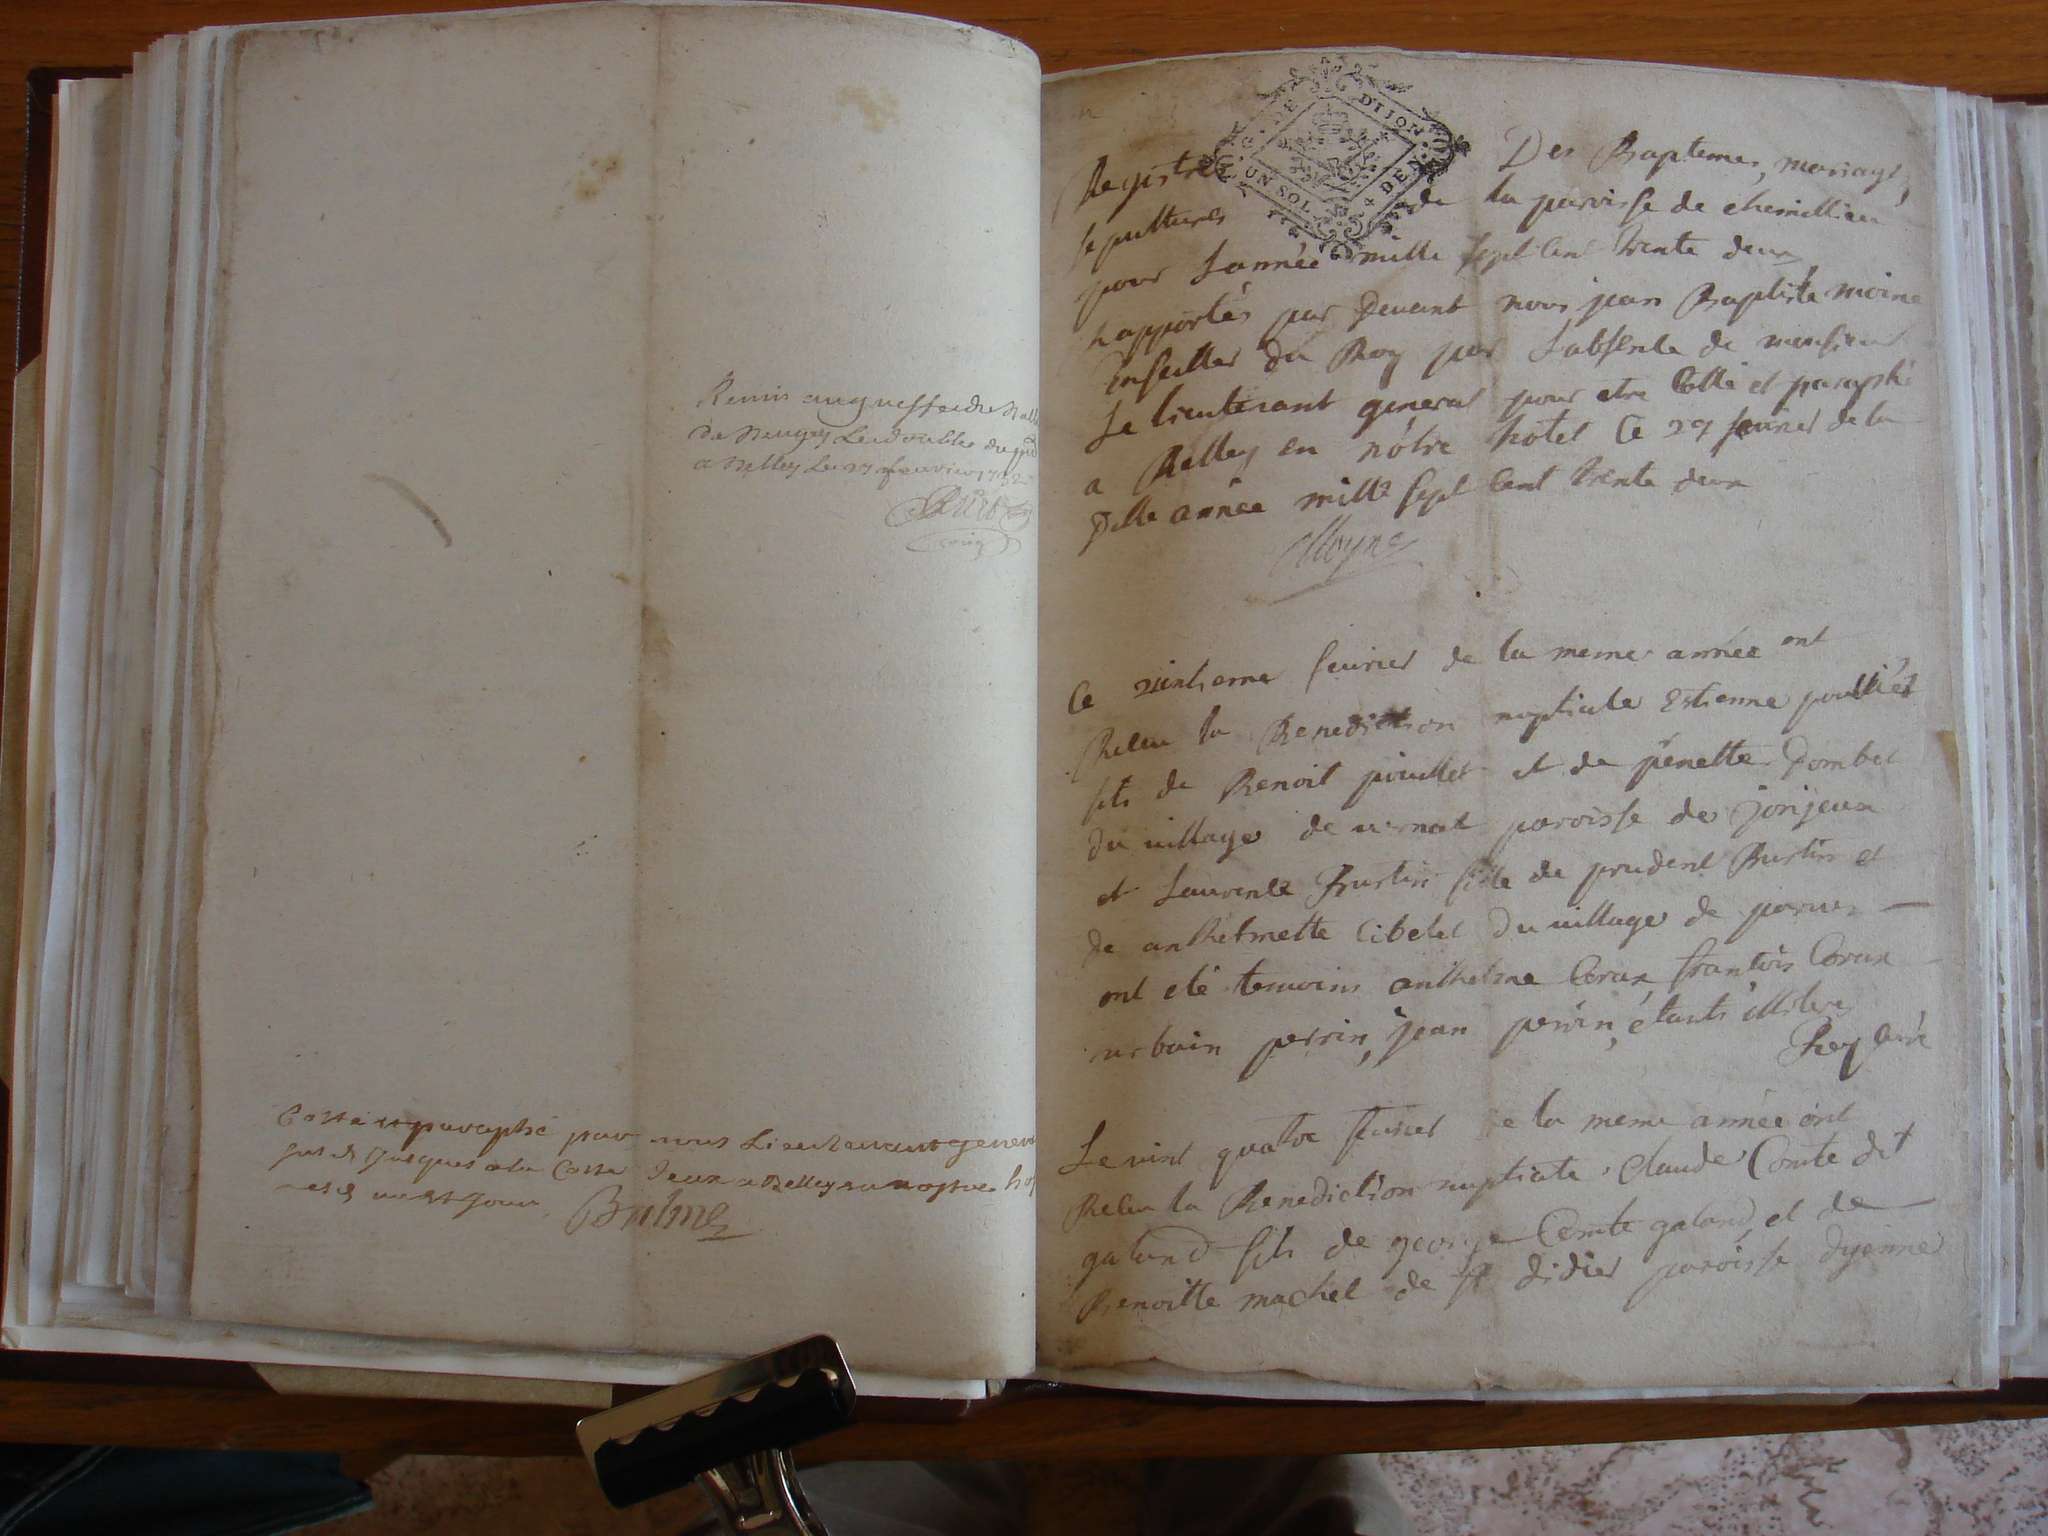 Remis au greffe du Ball
du Bugey Le double du pnt
a Belley Le 27 feuvrier 1732
Cotté et paraphé par nous Lieutenant general
jusques a la Cotte Deux a Belley en nostre hos
Balme
G. DE DIJON
UN SOL. 4 DEN
Registre Des Baptemes, mariages,
sepultures de la paroisse de chemillieu
pour Lannée mille sept cent trente deux
rapportés par Devant nous jean Baptiste moine
Conseiller du Roy par Labsence de monsieur
Le lieutenant general pour etre Cotté et paraphé
a Belley en nôtre hotel Ce 29 feurier de la
Ditte année mille sept Cent trente deux
Moyne
Ce feurier de la meme année ont
Receu la Benediction nuptiale Estienne poulliet
fils de Benoit poulliet et de penette Dombet
Du village de paroisse de jonjeux
et Laurence Burtin fille de prudent Burtin et
de anthelmette Cibelet Du uillage de parues
ont eté temoins anthelme Corax françois Corax
urbain perrin, jean perrin, étants illiteres
Rey Curé
Le uint quatre feurier de la meme année ont
Receu la Benediction nuptiale Claude Comte dit
galand fils de george Comte galand, et de
Benoitte machet de st didier paroisse dyenne